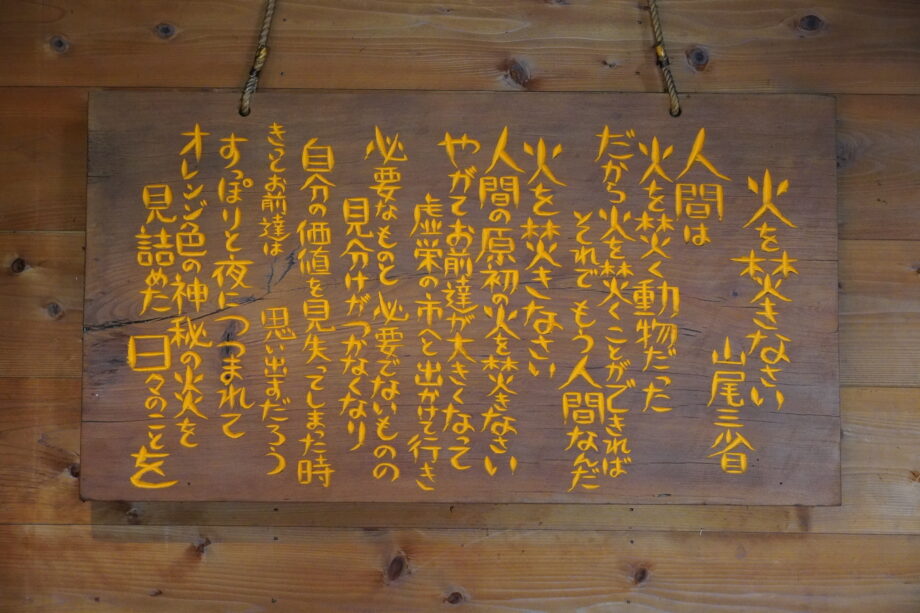 火を焚きなさい
山尾三省
人間は
火を焚く動物だった
だから火を焚くことができれば
それでもう人間なんだ
火を焚きなさい
人間の原初の火を焚きなさい
やがてお前達が大きくなって
虚栄の市へと出かけて行き
必要なものと必要でないものの
見分けがつかなくなり
自分の価値を見失ってしまった時
きっとお前達は 思い出すだろう
すっぽりと夜につつまれて
オレンジ色の神秘の火を
見詰めた日々のことを